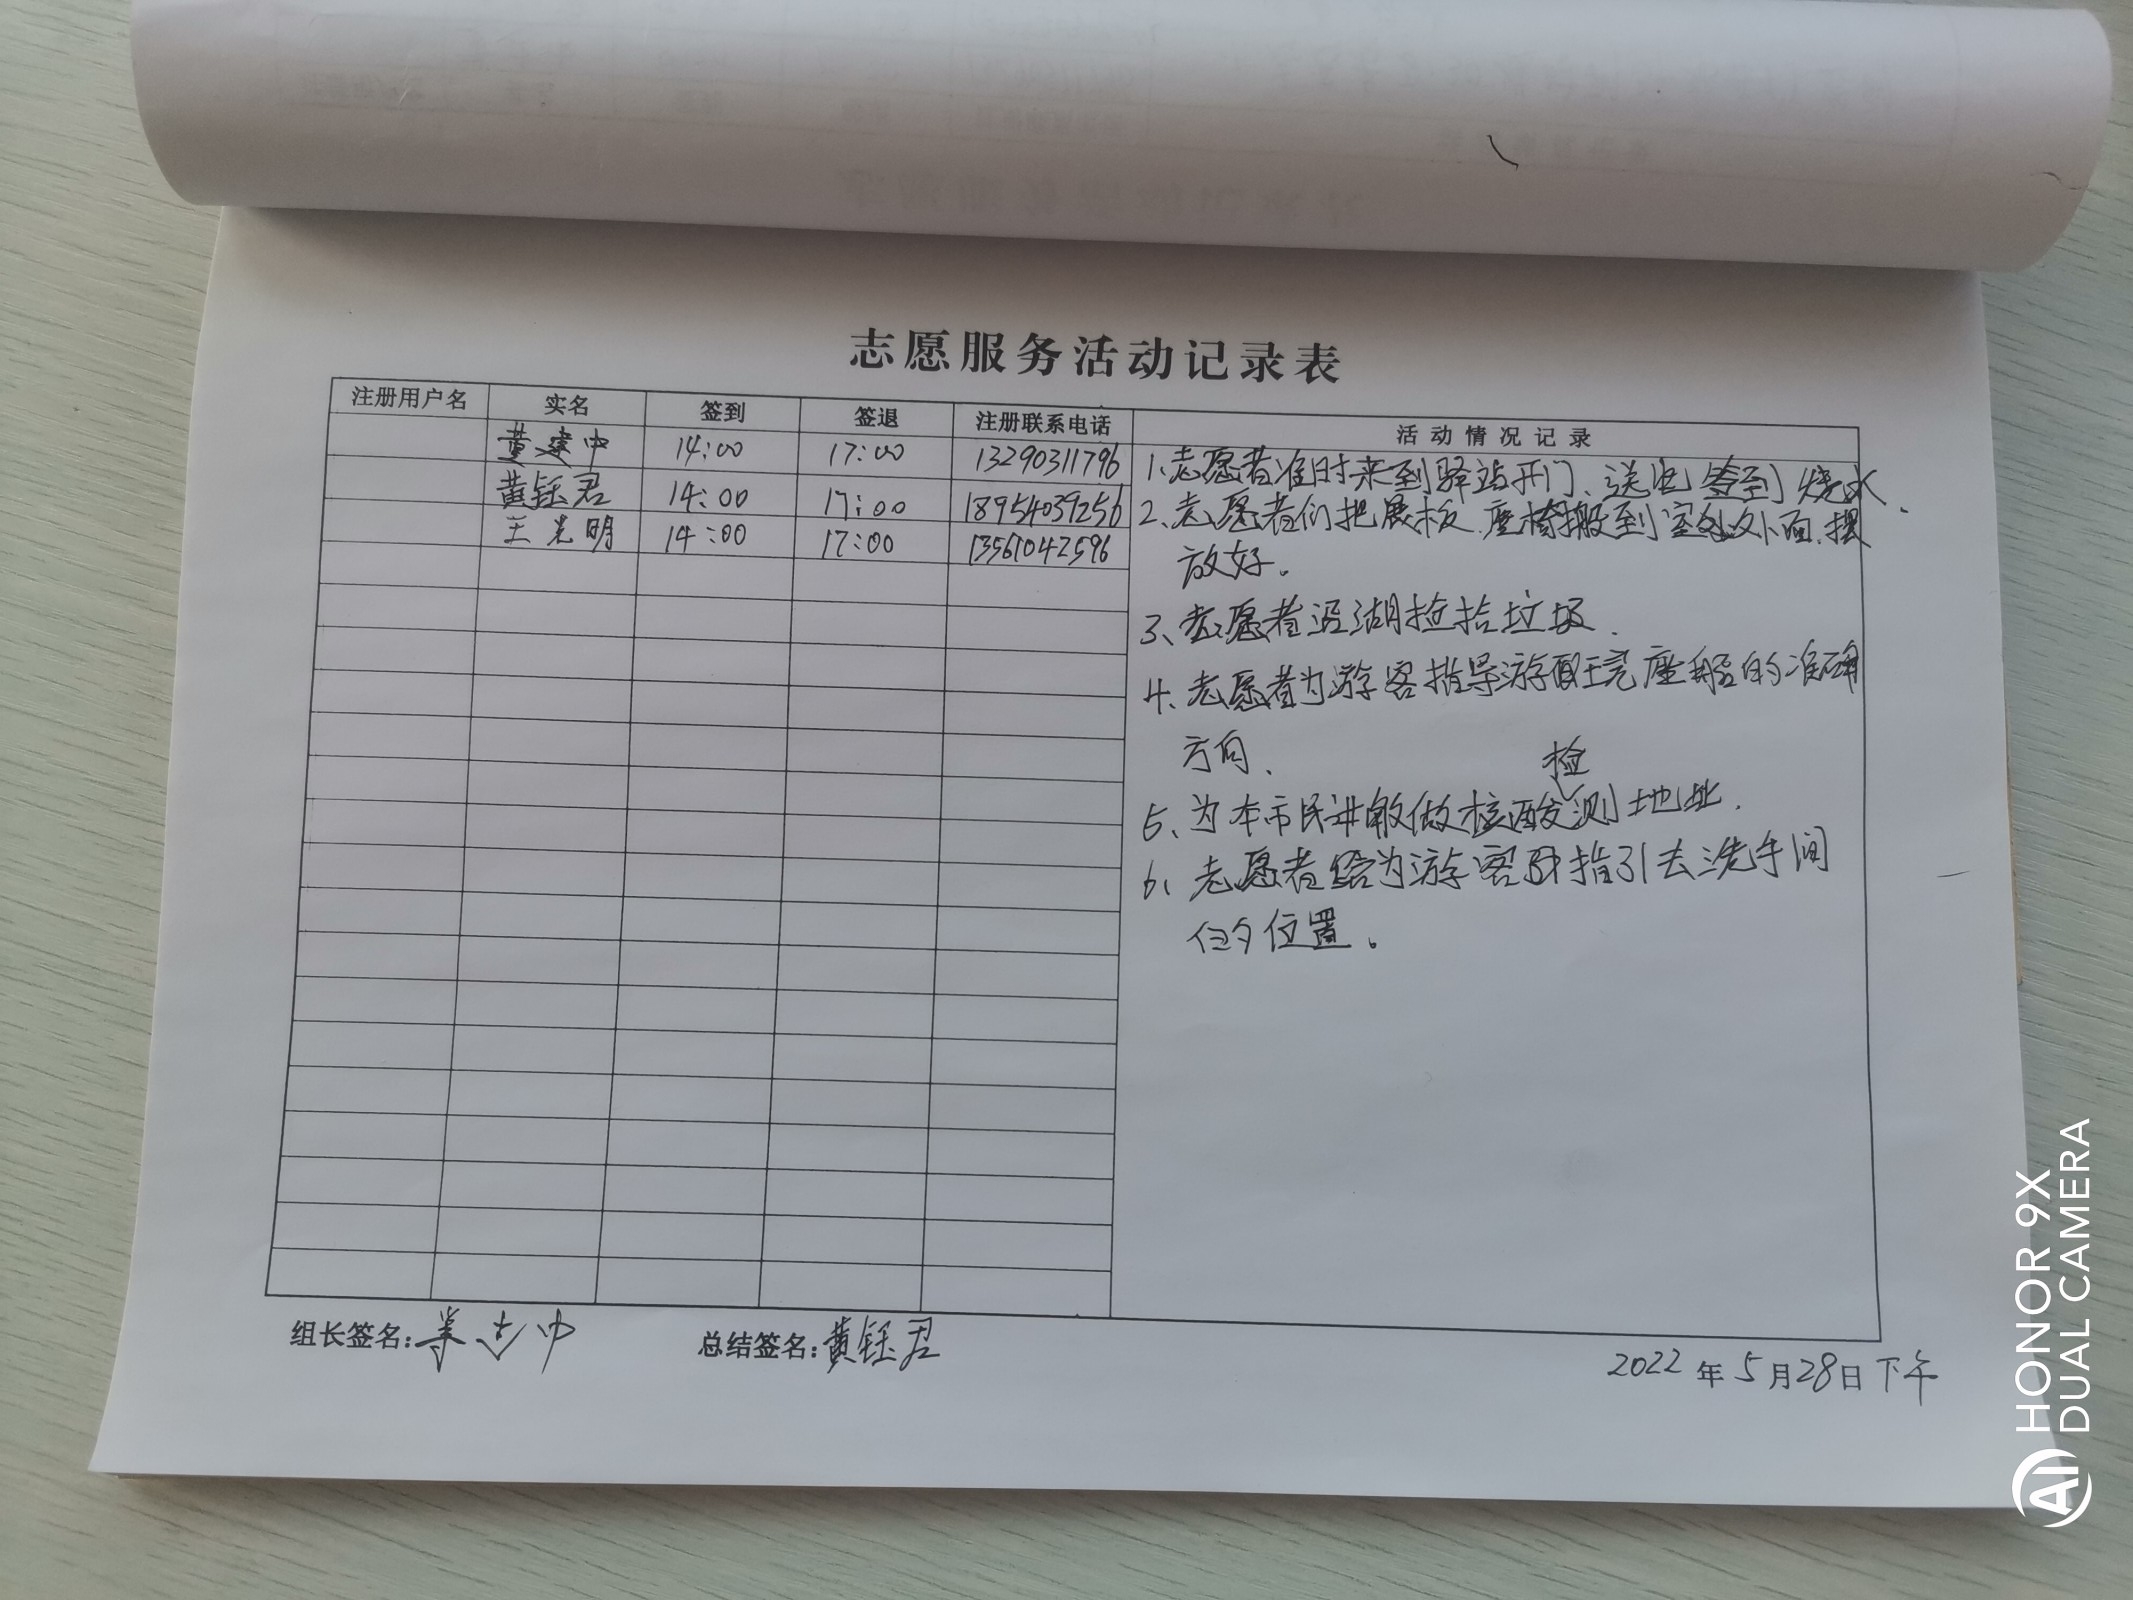 志愿服务活动记录表
注册用户名 实名 签到 签退 注册联系电话 活动情况记录
黄建中 14:00 17:00 13290311796
黄钰君 14:00 17:00 18954039256
王光明 14:00 17:00 13561042596
1、志愿者准时来到驿站开门、送电签到烧水.
2、志愿者们把展板.座椅搬到室外外面.摆
放好。
3、志愿者沿湖捡拾垃圾.
4、志愿者为游客指导游玩座船的准确
方向、
检
5、为本市民讲解做核酸测地址.
6、志愿者为游客指引去洗手间
位置。
组长签名: 总结签名:黄钰君
2022年5月28日下午
HONOR 9X
AI DUAL CAMERA